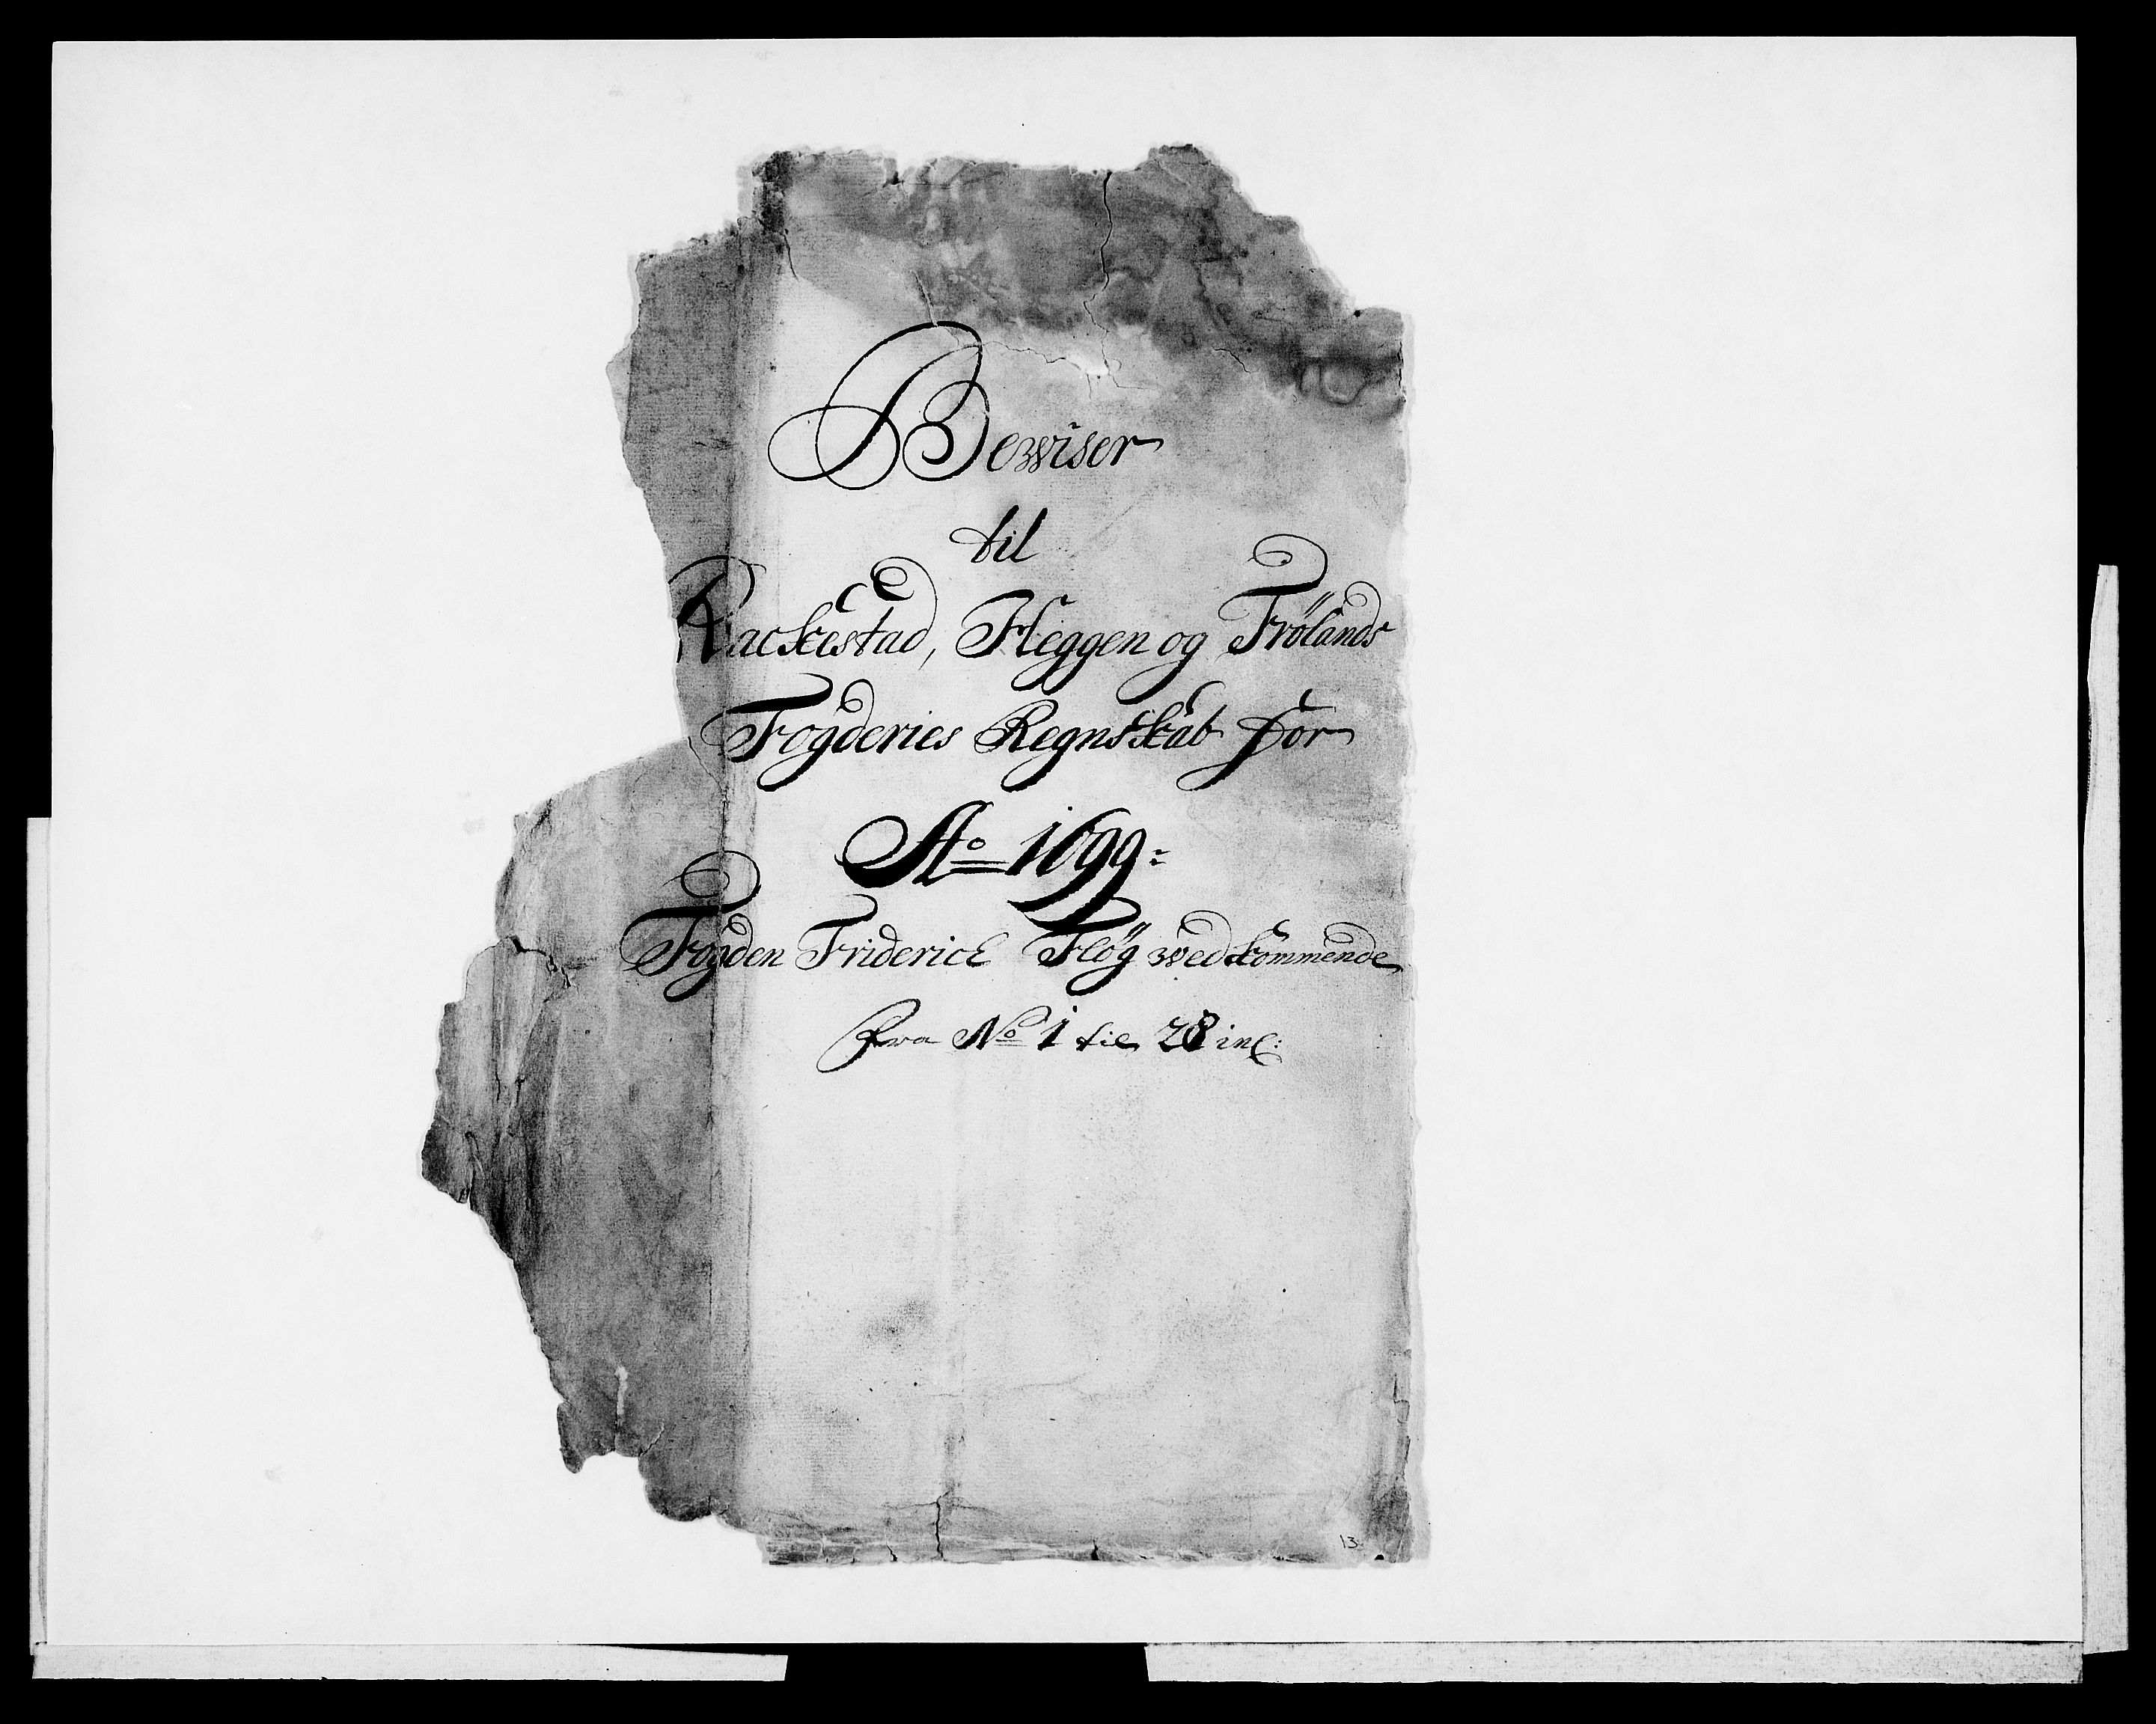 Bewiser
til
Rackestad, Heggen og Frölands
Fogderies Regnskab for
Ao 1699:
Fogden Friderich Flög wedkommende
fra No 1 til 28 inc:
13